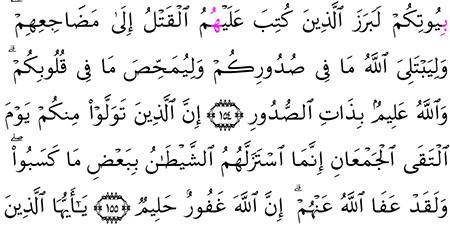 بِيُوتِكُمْ لَبَرَزَ ٱلَّذِينَ كُتِبَ عَلَيْهُمُ ٱلْقَتْلُ إِلَىٰ مَضَاجِعِهِمْۖ
وَلِيَبْتَلِىَ ٱللَّهُ مَا فِى صُدُورِكُمْ وَلِيُمَحِّصَ مَا فِى قُلُوبِكُمْۗ
وَٱللَّهُ عَلِيمُۢ بِذَاتِ ٱلصُّدُورِ ١٥٤ إِنَّ ٱلَّذِينَ تَوَلَّوْا۟ مِنكُمْ يَوْمَ
ٱلْتَقَى ٱلْجَمْعَانِ إِنَّمَا ٱسْتَزَلَّهُمُ ٱلشَّيْطَـٰنُ بِبَعْضِ مَا كَسَبُوا۟ۖ
وَلَقَدْ عَفَا ٱللَّهُ عَنْهُمْۗ إِنَّ ٱللَّهَ غَفُورٌ حَلِيمٌ ١٥٥ يَـٰٓأَيُّهَا ٱلَّذِينَ